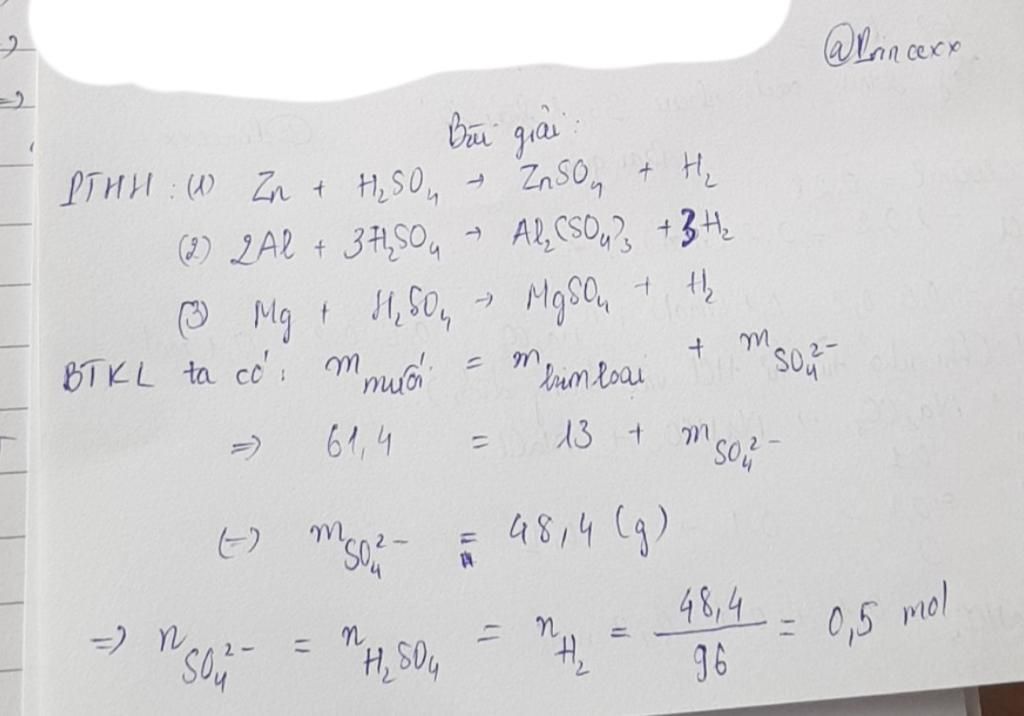 @Princexx
Bài giải:
PTHH : (1) Zn + H₂SO₄ → ZnSO₄ + H₂
(2) 2Al + 3H₂SO₄ → Al₂(SO₄)₃ + 3H₂
(3) Mg + H₂SO₄ → MgSO₄ + H₂
BTKL ta có: m muối = m kim loại + m SO₄²⁻
=> 61,4 = 13 + m SO₄²⁻
(=) m SO₄²⁻ = 48,4 (g)
=> n SO₄²⁻ = n H₂SO₄ = n H₂ = 48,4/96 = 0,5 mol